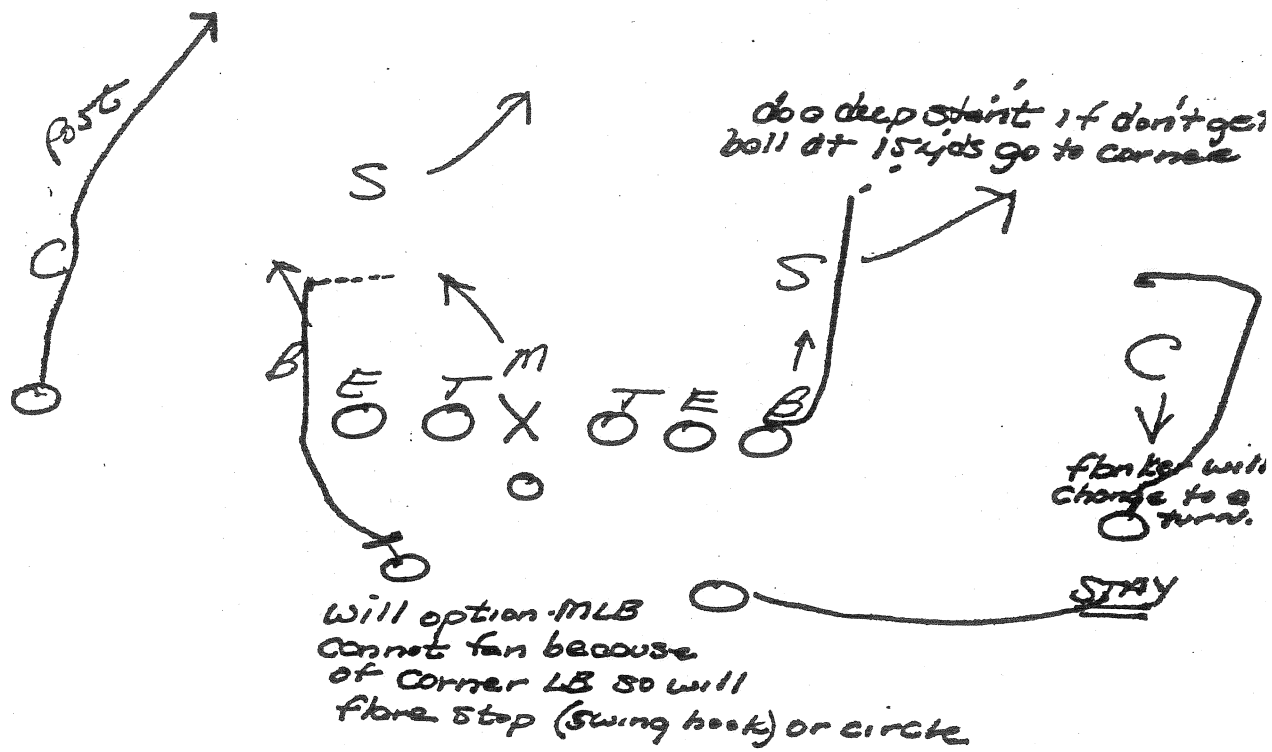 post
do a deep
if don't get
ball at 15 yds go to corner
S
S
C
C
M
B
E
T
T
E
B
X
flanker will
change to a
turn.
STAY
will option MLB
cannot fan because
of corner LB so will
flare stop (swing hook) or circle